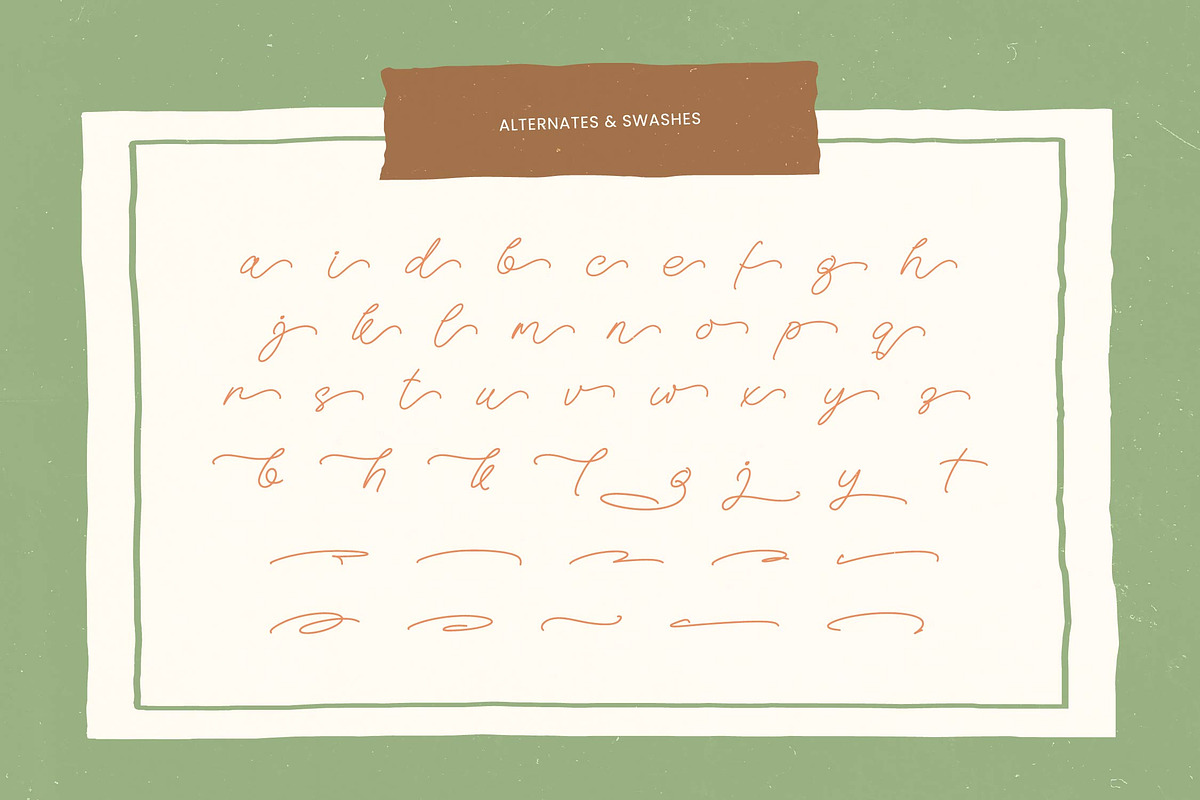 ALTERNATES & SWASHES
a i d b c e f g h
j k l m n o p q
r s t u v w x y z
b h k l g j y t